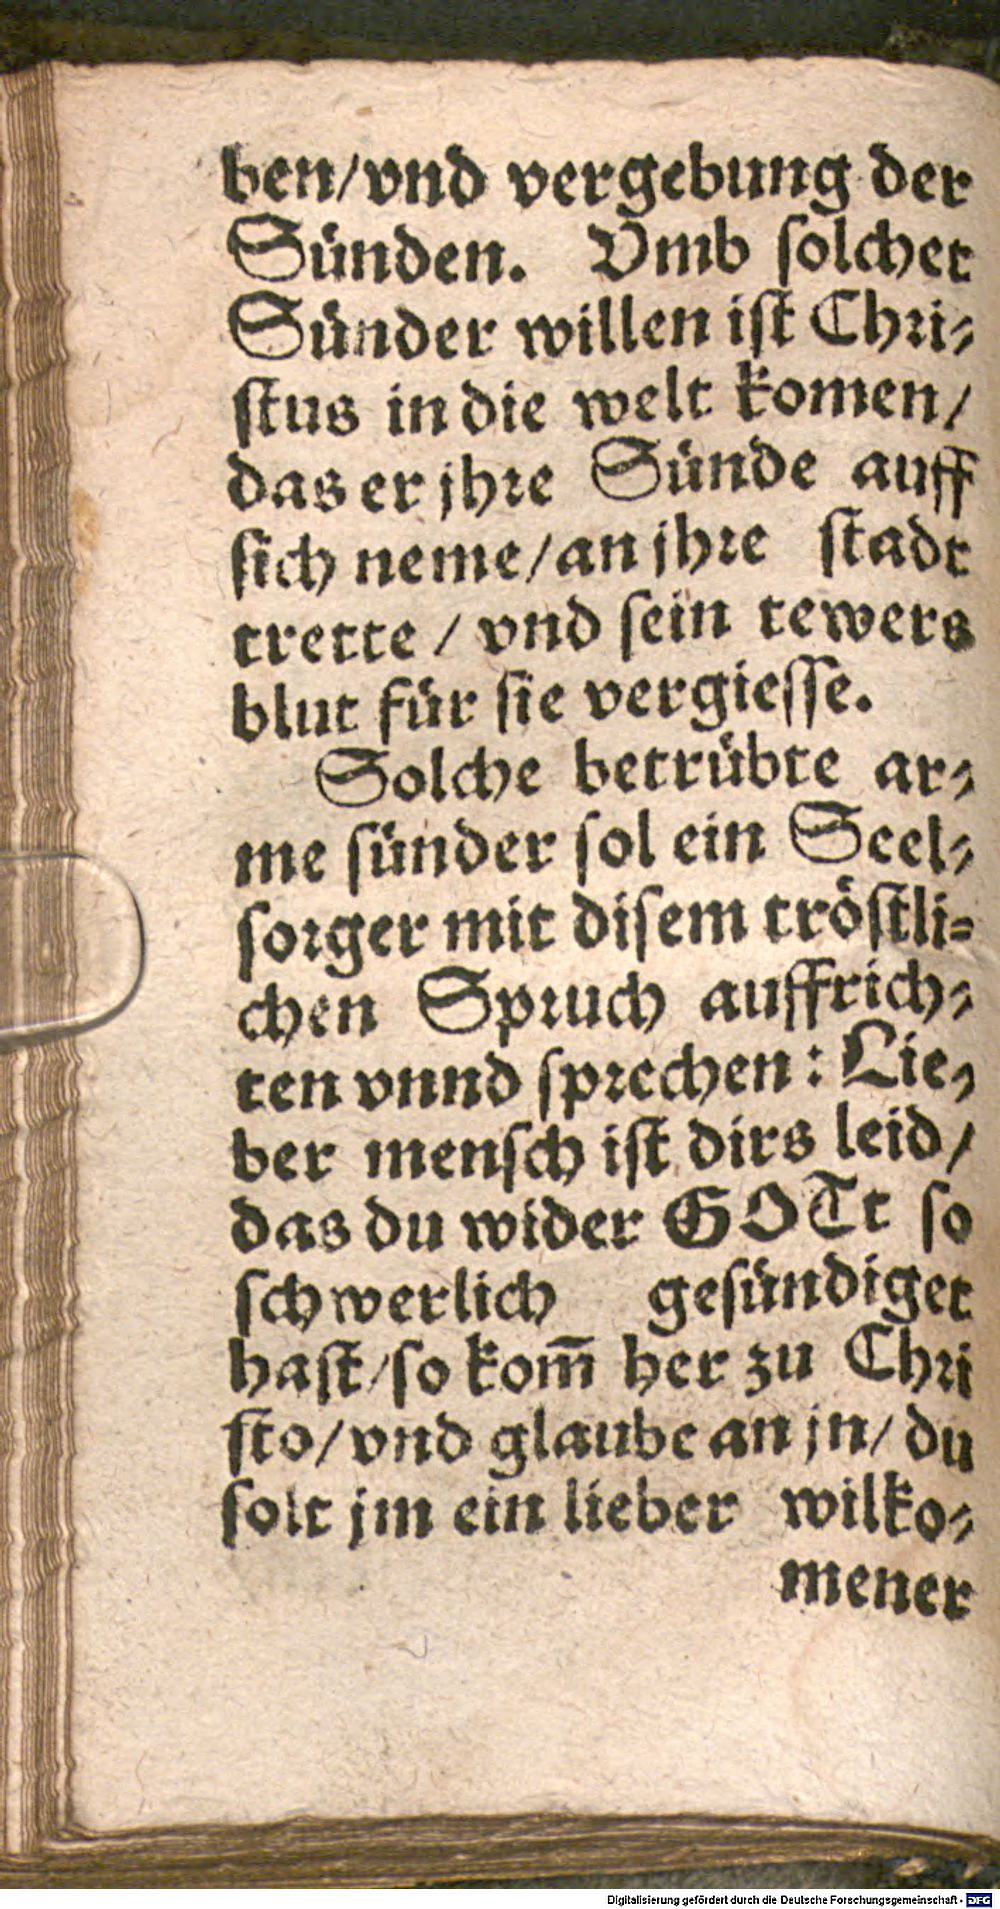 ben/vnd vergebung der
Sünden. Vmb solcher
Sünder willen ist Chri-
stus in die welt komen/
das er jhre Sünde auff
sich neme/an jhre stadt
trette / vnd sein tewers
blut für sie vergiesse.
Solche betrübte ar-
me sünder sol ein Seel-
sorger mit disem tröstli-
chen Spruch auffrich-
ten vnnd sprechen: Lie-
ber mensch ist dirs leid/
das du wider GOTt so
schwerlich gesündiget
hast/so kom̄ her zu Chri
sto/vnd glaube an jn/ du
solt jm ein lieber wilko-
mener
Digitalisierung gefördert durch die Deutsche Forschungsgemeinschaft - DFG